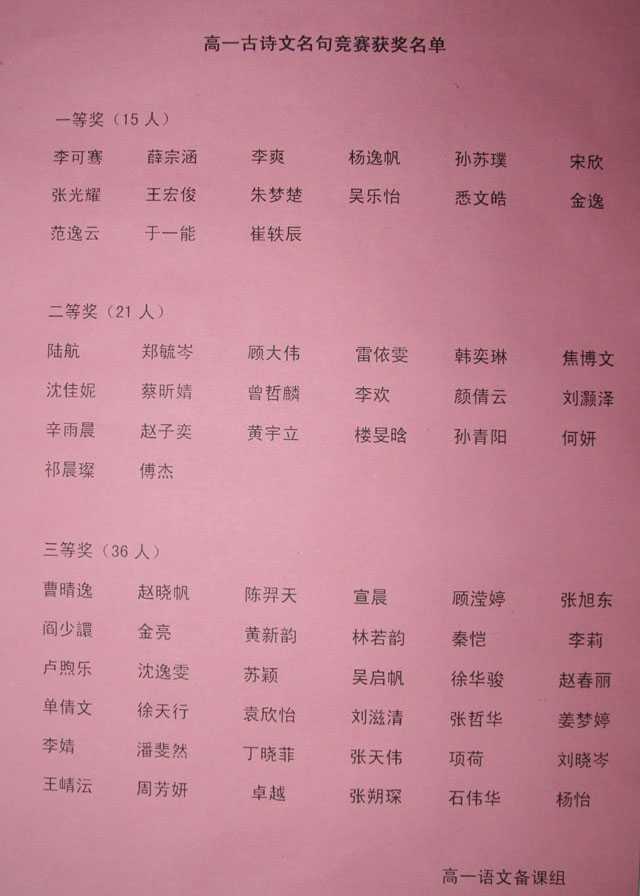 高一古诗文名句竞赛获奖名单
一等奖（15 人）
李可骞 薛宗涵 李爽 杨逸帆 孙苏璞 宋欣
张光耀 王宏俊 朱梦楚 吴乐怡 悉文皓 金逸
范逸云 于一能 崔轶辰
二等奖（21 人）
陆航 郑毓岑 顾大伟 雷依雯 韩奕琳 焦博文
沈佳妮 蔡昕婧 曾哲麟 李欢 颜倩云 刘灏泽
辛雨晨 赵子奕 黄宇立 楼旻晗 孙青阳 何妍
祁晨璨 傅杰
三等奖（36 人）
曹晴逸 赵晓帆 陈羿天 宣晨 顾滢婷 张旭东
阎少譞 金亮 黄新韵 林若韵 秦恺 李莉
卢煦乐 沈逸雯 苏颖 吴启帆 徐华骏 赵春丽
单倩文 徐天行 袁欣怡 刘滋清 张哲华 姜梦婷
李婧 潘斐然 丁晓菲 张天伟 项荷 刘晓岑
王崝沄 周芳妍 卓越 张朔琛 石伟华 杨怡
高一语文备课组